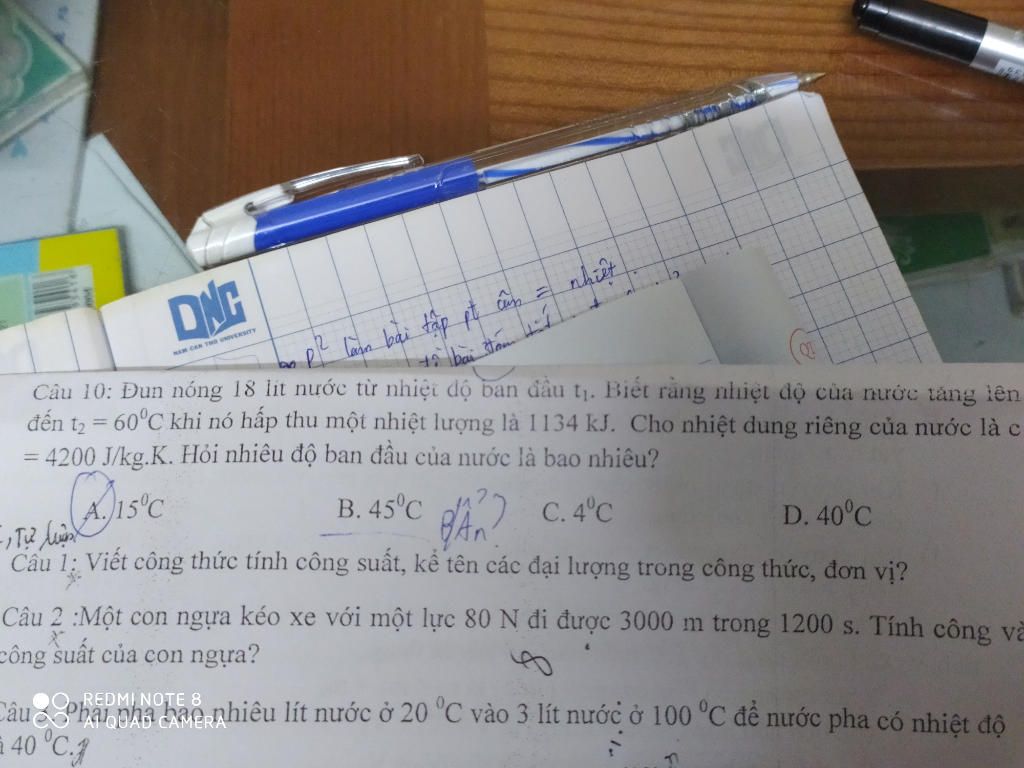 DNC
NAM CAN THO UNIVERSITY
p² làm bài tập pt cân = nhiệt
bài
Câu 10: Đun nóng 18 lít nước từ nhiệt độ ban đầu t₁. Biết rằng nhiệt độ của nước tăng lên
đến t₂ = 60⁰C khi nó hấp thu một nhiệt lượng là 1134 kJ. Cho nhiệt dung riêng của nước là c
= 4200 J/kg.K. Hỏi nhiêu độ ban đầu của nước là bao nhiêu?
A. 15⁰C B. 45⁰C C. 4⁰C D. 40⁰C
Tự luận
Câu 1: Viết công thức tính công suất, kể tên các đại lượng trong công thức, đơn vị?
Câu 2 :Một con ngựa kéo xe với một lực 80 N đi được 3000 m trong 1200 s. Tính công và
công suất của con ngựa?
Phải pha bao nhiêu lít nước ở 20 ⁰C vào 3 lít nước ở 100 ⁰C để nước pha có nhiệt độ
40 ⁰C.
REDMI NOTE 8
AI QUAD CAMERA